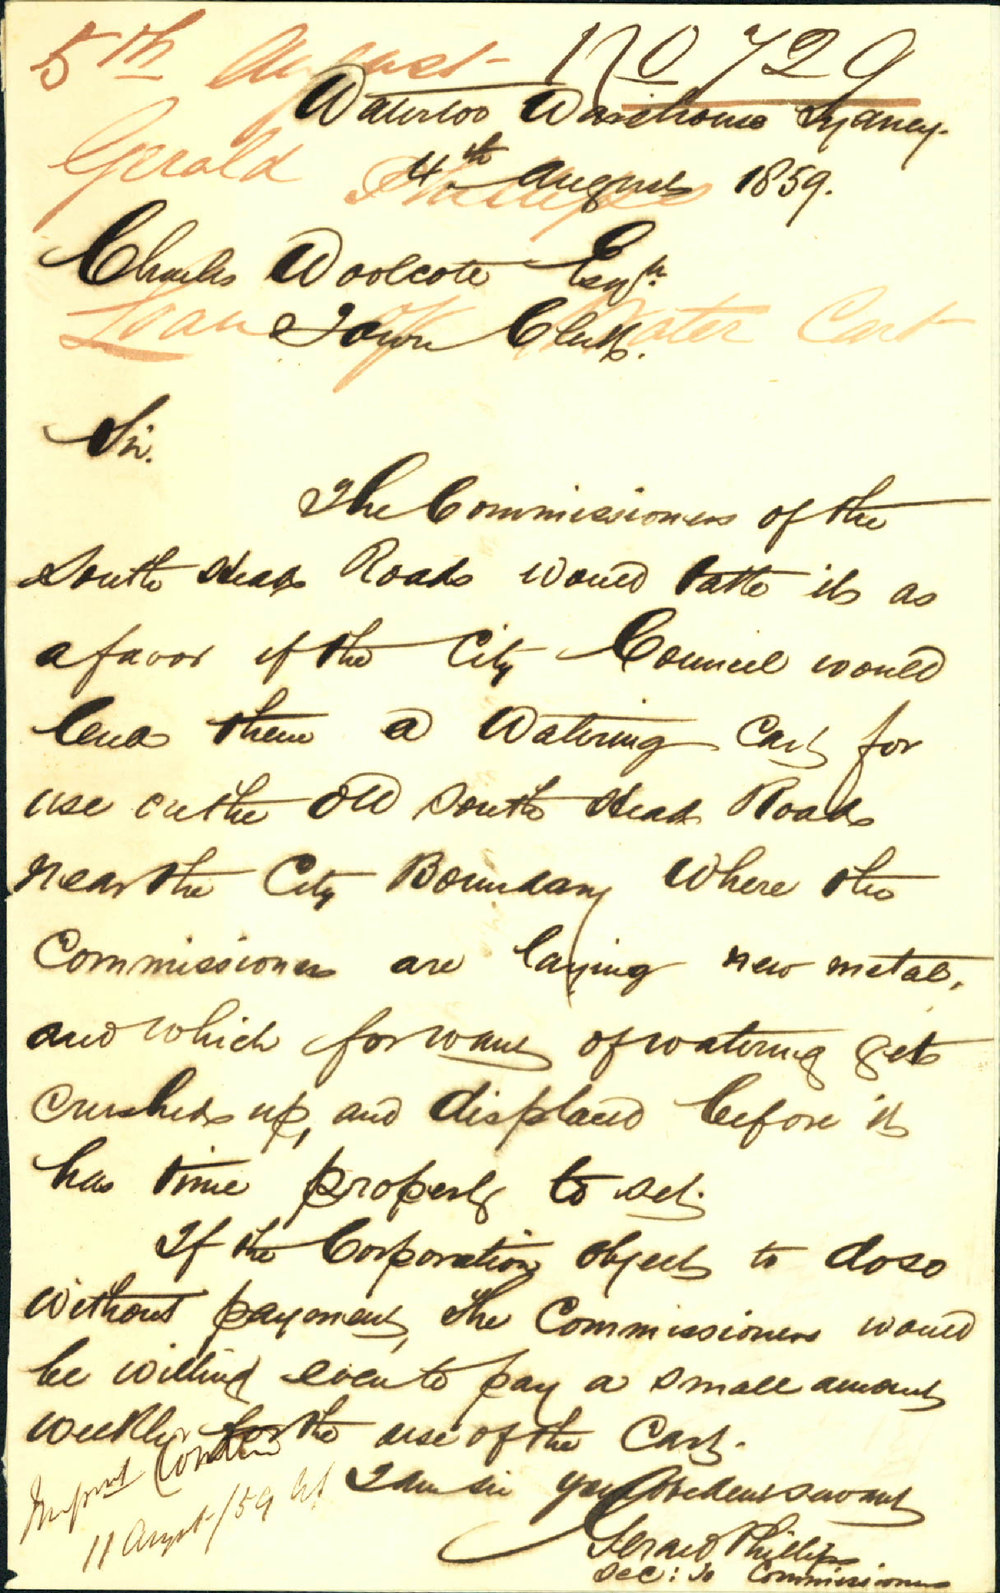 5th August No 729
Waterloo Warehouse Sydney.
Gerald Phillips
4th August 1859.
Charles Woolcott Esqr.
Loan of Water Cart
Town Clerk.
Sir.
The Commissioners of the
South Head Roads would take it as
a favor if the City Council would
lend them a Watering Cart for
use on the Old South Head Roads
near the City Boundary Where the
Commissioners are laying new metal,
and which for want of watering gets
crushed up, and displaced before it
has time properly to set.
If the Corporation object to do so
without payment, the Commissioners would
be willing even to pay a small amount
weekly for the use of the Cart.
I am sir your Obedient servant
Gerald Phillips
Sec: to Commissioners
11 August/59